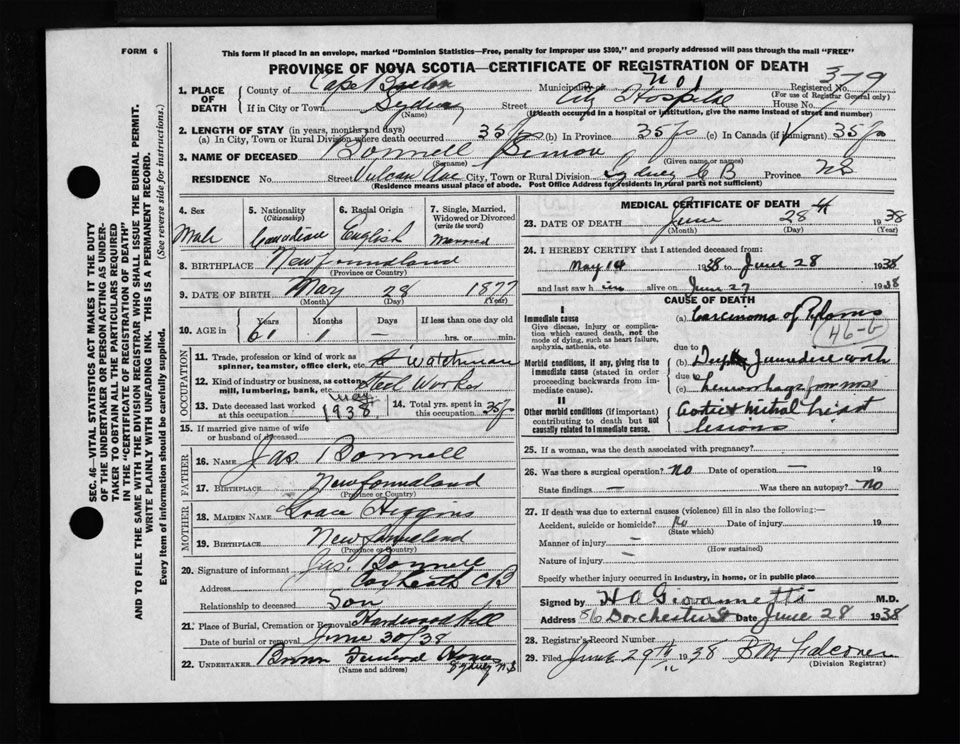 FORM 6
This form if placed in an envelope, marked "Dominion Statistics—Free, penalty for improper use $300," and properly addressed will pass through the mail "FREE"
PROVINCE OF NOVA SCOTIA—CERTIFICATE OF REGISTRATION OF DEATH
379
1. PLACE OF DEATH
County of Cape Breton Municipality No 1 Registered No.
(For use of Registrar General only)
If in City or Town Sydney Street City Hospital House No.
(Name) (If death occurred in a hospital or institution, give the name instead of street and number)
2. LENGTH OF STAY (in years, months and days)
(a) In City, Town or Rural Division where death occurred 35 yrs (b) In Province 35 yrs (c) In Canada (if immigrant) 35 yrs
3. NAME OF DECEASED Bonnell Simon
(Surname) (Given name or names)
RESIDENCE No. Street Vulcan Ave City, Town or Rural Division Sydney C B Province NS
(Residence means usual place of abode. Post Office Address for residents in rural parts not sufficient)
4. Sex Male
5. Nationality (Citizenship) Canadian
6. Racial Origin English
7. Single, Married, Widowed or Divorced (write the word) Married
8. BIRTHPLACE Newfoundland
(Province or Country)
9. DATE OF BIRTH May 28 1877
(Month) (Day) (Year)
10. AGE in Years Months Days If less than one day old
61 1 — hrs. or min.
OCCUPATION
11. Trade, profession or kind of work as spinner, teamster, office clerk, etc. Watchman
12. Kind of industry or business, as cotton mill, lumbering, bank, etc. Steel Works
13. Date deceased last worked at this occupation May 1938
14. Total yrs. spent in this occupation 35 yrs
15. If married give name of wife or husband of deceased
FATHER
16. NAME Jas. Bonnell
17. BIRTHPLACE Newfoundland
(Province or Country)
MOTHER
18. MAIDEN NAME Grace Higgins
19. BIRTHPLACE Newfoundland
(Province or Country)
20. Signature of informant Jas. Bonnell
Address Coxheath CB
Relationship to deceased Son
21. Place of Burial, Cremation or Removal Hardwood Hill
Date of burial or removal June 30/38
22. UNDERTAKER Funeral Home
Sydney N.S
MEDICAL CERTIFICATE OF DEATH
23. DATE OF DEATH June 28 1938
(Month) (Day) (Year)
24. I HEREBY CERTIFY that I attended deceased from:
May 14 1938 to June 28 1938
and last saw him alive on June 27 1938
CAUSE OF DEATH
I
Immediate cause
Give disease, injury or complication which caused death, not the mode of dying, such as heart failure, asphyxia, asthenia, etc.
(a) Carcinoma of Pylorus
46-6
due to
Morbid conditions, if any, giving rise to immediate cause (stated in order proceeding backwards from immediate cause).
(b) Deep Jaundice with
due to
(c) Hemorrhage from nose
II
Other morbid conditions (if important) contributing to death but not causally related to immediate cause.
Aortic & mitral heart
lesions
25. If a woman, was the death associated with pregnancy?
26. Was there a surgical operation? no Date of operation — 19
State findings — Was there an autopsy? no
27. If death was due to external causes (violence) fill in also the following:—
Accident, suicide or homicide? No Date of injury 19
(State which)
Manner of injury —
(How sustained)
Nature of injury —
Specify whether injury occurred in industry, in home, or in public place
Signed by H A Giovannetti M.D.
Address 86 Dorchester St Date June 28 1938
28. Registrar's Record Number
29. Filed June 29th 1938 B M Falconer
(Division Registrar)
SEC. 46—VITAL STATISTICS ACT MAKES IT THE DUTY
OF THE UNDERTAKER OR PERSON ACTING AS UNDERTAKER
TO OBTAIN ALL THE PARTICULARS REQUIRED
IN THE "CERTIFICATE OF REGISTRATION OF DEATH"
AND TO FILE THE SAME WITH THE DIVISION REGISTRAR WHO SHALL ISSUE THE BURIAL PERMIT.
WRITE PLAINLY WITH UNFADING INK. THIS IS A PERMANENT RECORD.
Every item of information should be carefully supplied. (See reverse side for instructions.)